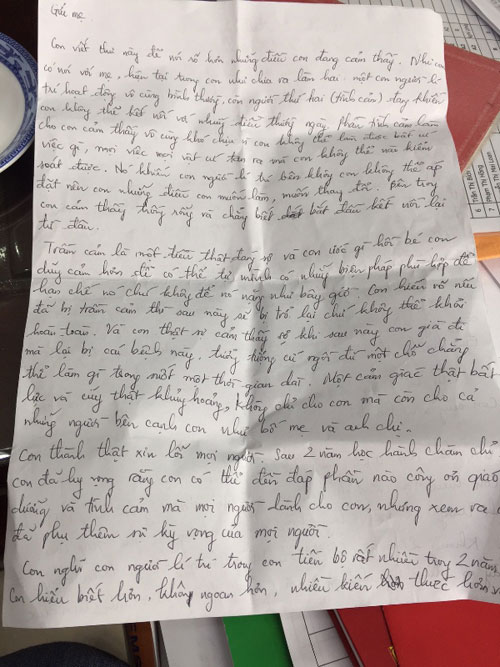 Gửi mẹ
Con viết thư này để nói rõ hơn những điều con đang cảm thấy. Như con
có nói với mẹ, hiện tại trong con như chia ra làm hai: một con người lí
trí hoạt động vô cùng bình thường, con người thứ hai (tình cảm) đang khiến
con không thể kết nối với những điều thường ngày. Phần tình cảm làm
cho con cảm thấy vô cùng khó chịu vì con không thể làm được bất cứ
việc gì, mọi việc mọi vật cứ tan ra mà con không thể nào kiểm
soát được. Nó khiến con người lí trí bên không con không thể áp
đặt nên con những điều con muốn làm, muốn thay đổi. Bên trong
con cảm thấy trống rỗng và chẳng biết bắt đầu kết nối lại
từ đâu.
Trầm cảm là một điều thật đáng sợ và con ước gì hồi bé con
dũng cảm hơn để có thể tự mình có những biện pháp phù hợp để
hạn chế nó chứ không để nó nặng như bây giờ. Con hiểu rõ nếu
đã bị trầm cảm thì sau này sẽ bị trở lại chứ không thể khỏi
hoàn toàn. Và con thật sự cảm thấy sợ khi sau này con già đi
mà lại bị cái bệnh này, tưởng tượng cứ ngồi đừ một chỗ chẳng
thể làm gì trong suốt một thời gian dài. Một cảm giác thật bất
lực và cũng thật khủng hoảng, không chỉ cho con mà còn cho cả
những người bên cạnh con như bố mẹ và anh chị.
Con thành thật xin lỗi mọi người. Sau 2 năm học hành chăm chỉ
con đã hy vọng rằng con có thể đền đáp phần nào công ơn giáo
dưỡng và tình cảm mà mọi người dành cho con, nhưng xem ra c
đã phụ thêm sự kỳ vọng của mọi người.
Con nghĩ con người lí trí trong con tiến bộ rất nhiều trong 2 năm,
con hiểu biết hơn, khôn ngoan hơn, nhiều kiến thức hơn và